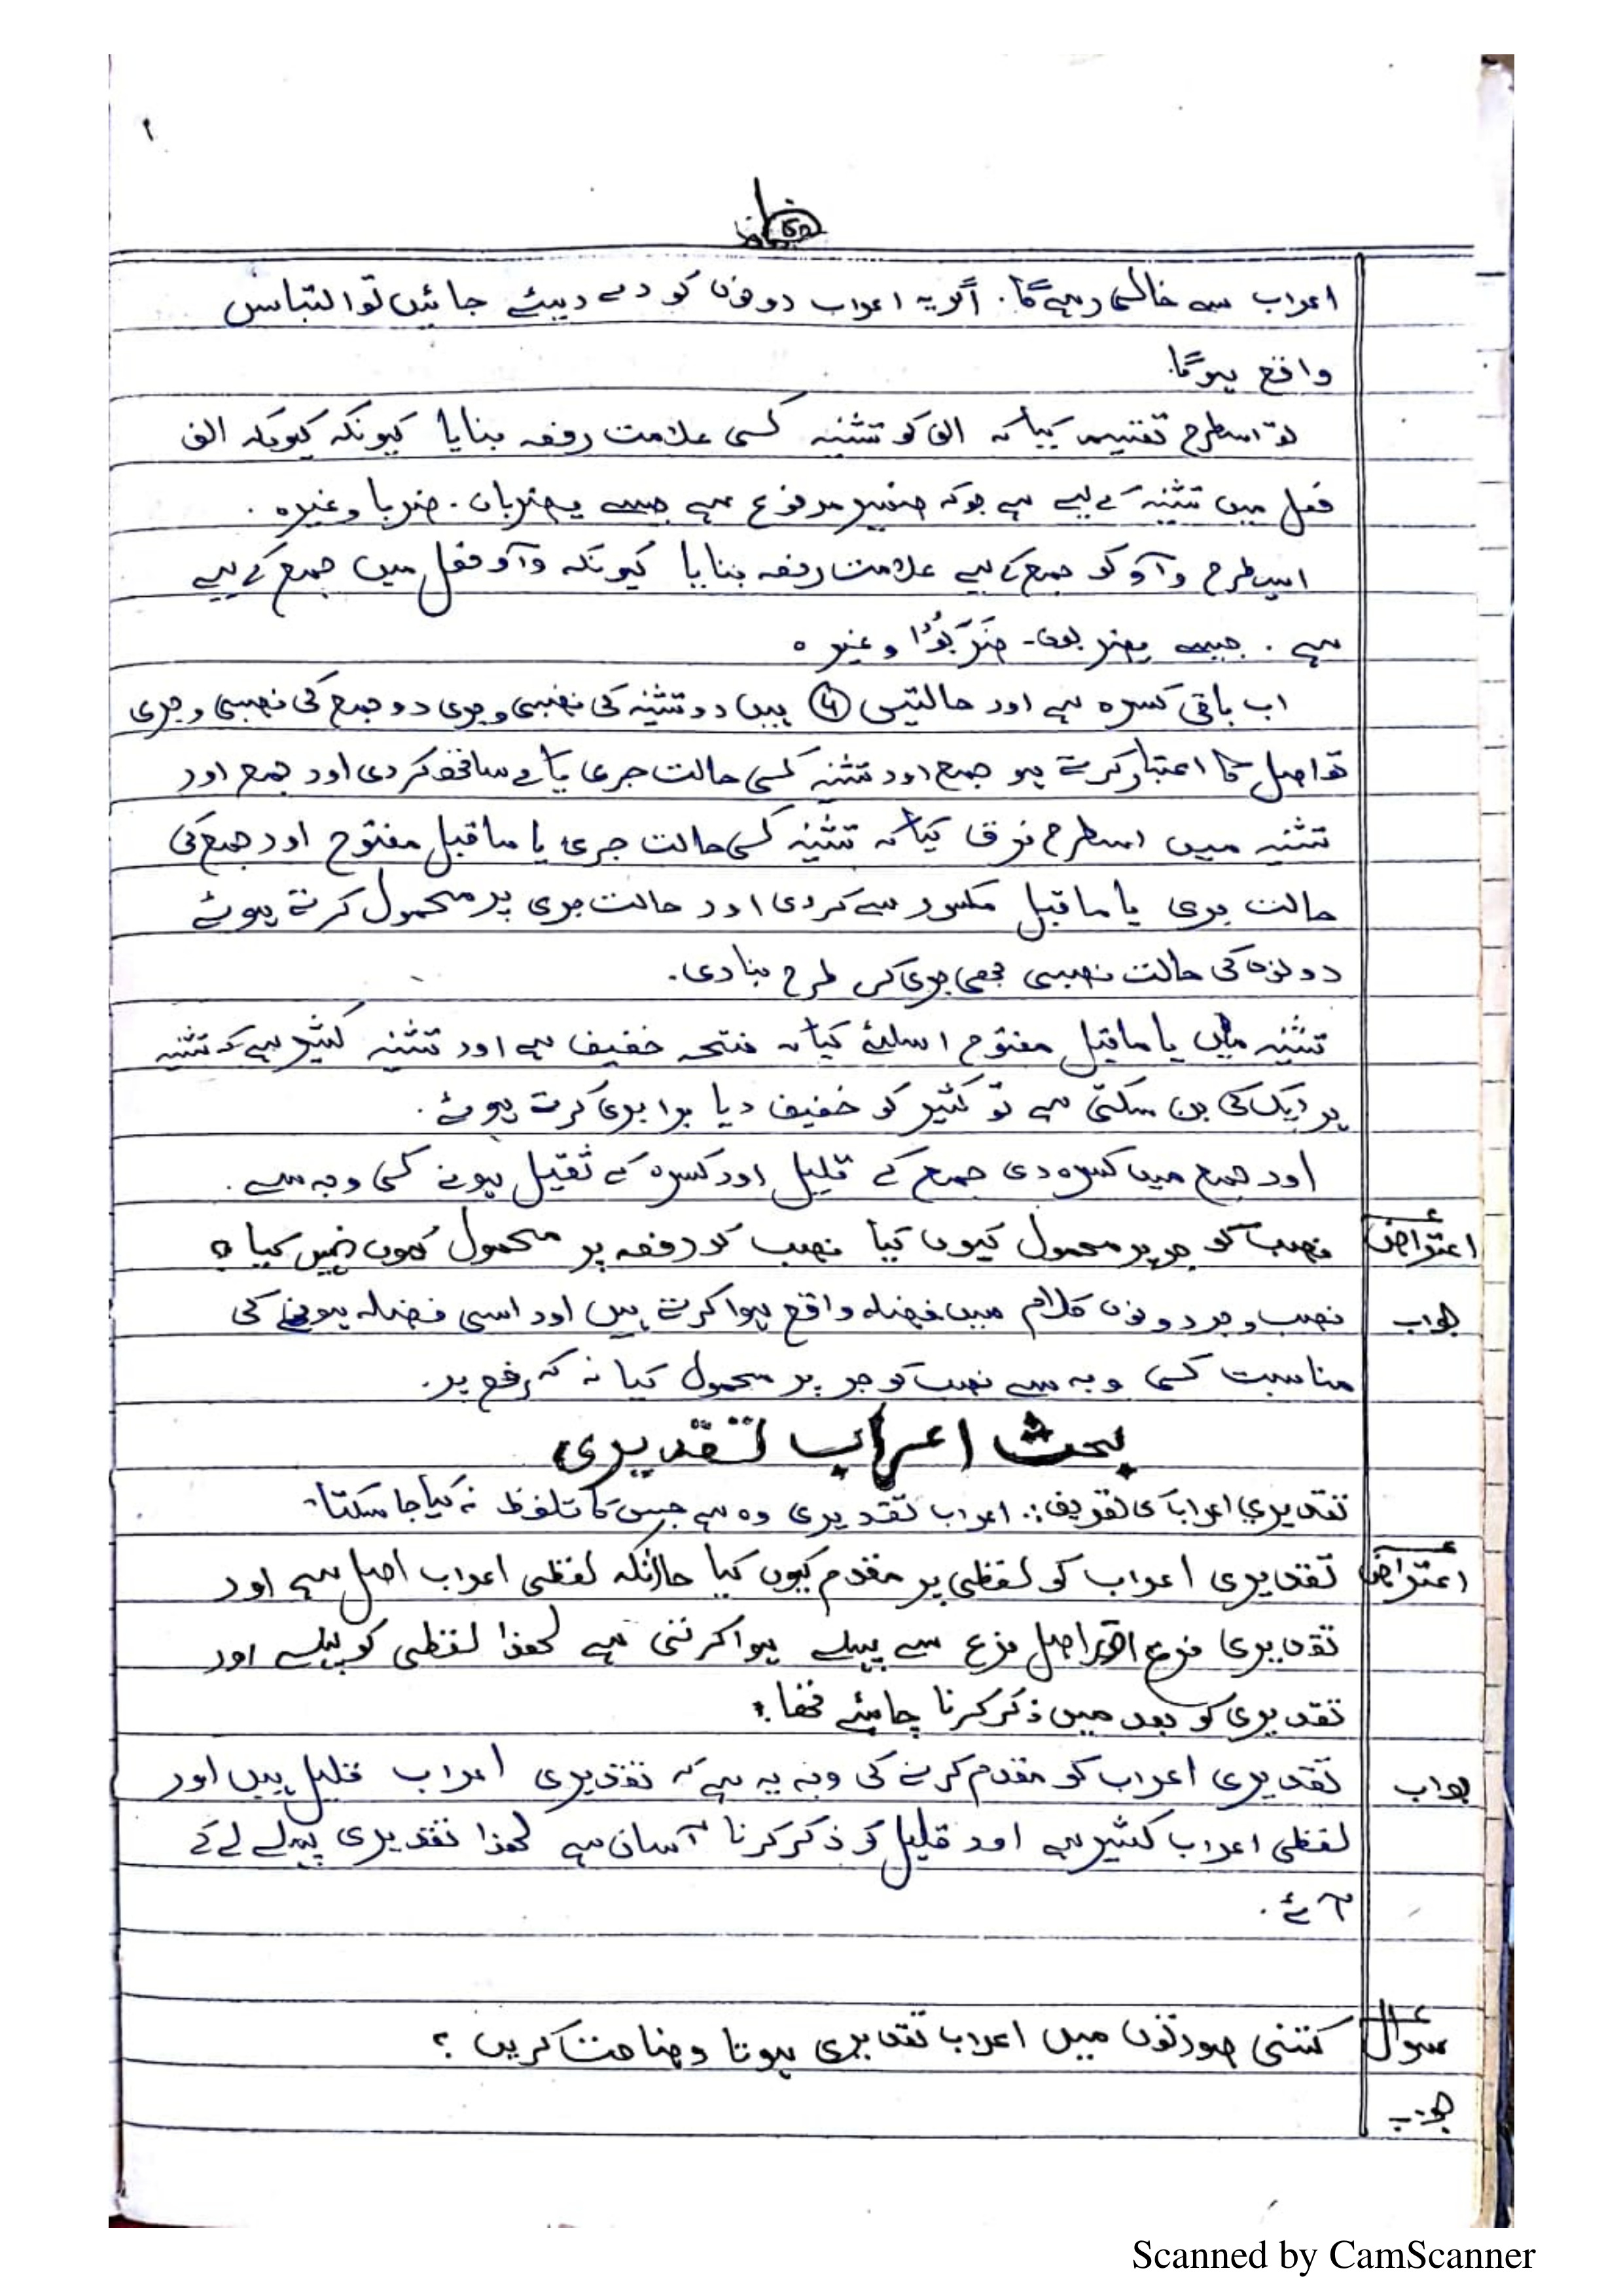 اعراب سے خالی رہے گا. اگر یہ اعراب دونوں کو دے دیئے جائیں تو التباس
واقع ہوگا.
تو اسطرح تقسیم کیا کہ الف کو تثنیہ کی علامت رفعہ بنایا کیونکہ کیونکہ الف
فعل میں تثنیہ کے لیے ہے جو کہ ضمیر مرفوع ہے جیسے یضربان . ضربا وغیرہ .
اسی طرح واؤ کو جمع کے لیے علامت رفعہ بنایا کیونکہ واؤ فعل میں جمع کے لیے
ہے . جیسے یضربون - ضَرَبُوْا وغیرہ
اب باقی کسرہ ہے اور حالتیں ④ ہیں دو تثنیہ کی نصبی و جری دو جمع کی نصبی و جری
تو اصل کا اعتبار کرتے ہو جمع اور تثنیہ کی حالت جری یا کے ساتھ کردی اور جمع اور
تثنیہ میں اسطرح فرق کیا کہ تثنیہ کی حالت جری یا ماقبل مفتوح اور جمع کی
حالت جری یا ماقبل مکسور سے کردی اور حالت جری پر محمول کرتے ہوئے
دونوں کی حالت نصبی بھی جری کی طرح بنا دی.
تثنیہ میں یا ماقبل مفتوح اسلئے کیا کہ فتحہ خفیف ہے اور تثنیہ کثیر ہے کہ تثنیہ
ہر ایک کی بن سکتی ہے تو کثیر کو خفیف دیا برابری کرتے ہوئے .
اور جمع میں کسرہ دی جمع کے قلیل اور کسرہ کے ثقیل ہونے کی وجہ سے .
اعتراض نصب کو جر پر محمول کیوں کیا نصب کو رفعہ پر محمول کیوں نہیں کیا؟
جواب نصب و جر دونوں کلام میں فضلہ واقع ہوا کرتے ہیں اور اسی فضلہ ہونے کی
مناسبت کی وجہ سے نصب کو جر پر محمول کیا نہ کہ رفع پر.
بحث اعراب تقدیری
تقدیری اعراب کی تعریف:. اعراب تقدیری وہ ہے جس کا تلفوظ نہ کیا جا سکتا.
اعتراض تقدیری اعراب کو لفظی پر مقدم کیوں کیا حالانکہ لفظی اعراب اصل ہے اور
تقدیری فرع اور اصل فرع سے پہلے ہوا کرتی ہے لھذا لفظی کو پہلے اور
تقدیری کو بعد میں ذکر کرنا چاہئے تھا؟
جواب تقدیری اعراب کو مقدم کرنے کی وجہ یہ ہے کہ تقدیری اعراب قلیل ہیں اور
لفظی اعراب کثیر ہے اور قلیل کو ذکر کرنا آسان ہے لھذا تقدیری پہلے لے کے
آئے .
سوال کتنی صورتوں میں اعراب تقدیری ہوتا وضاحت کریں ؟
جواب
Scanned by CamScanner